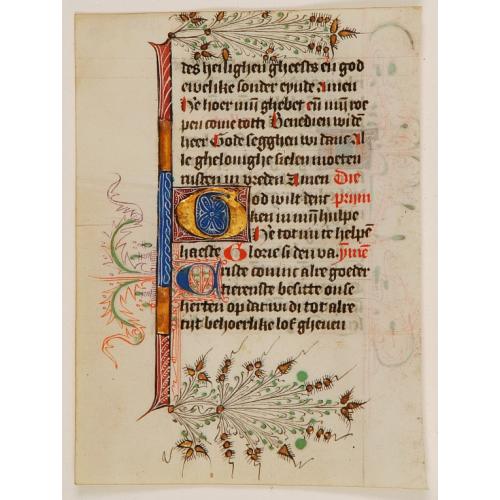 des heilighen gheests en̄ god
ewelike sonder eynde Amen
He hoer mijn ghebet en̄ mijn roe
pen come tot ti Benedien wi dē
heer Gode segghen wi danc Al
le ghelouighe sielen moeten
rusten in vreden Amen Die
God wilt dent prijm
ken in mijn hulpe
He tot mi te helpē
haeste Glorie si den va ȳmē
Criste comme alre goeder
tierenste besitte onse
herten op dat wi di tot alre
tijt behoerlike lof gheuen